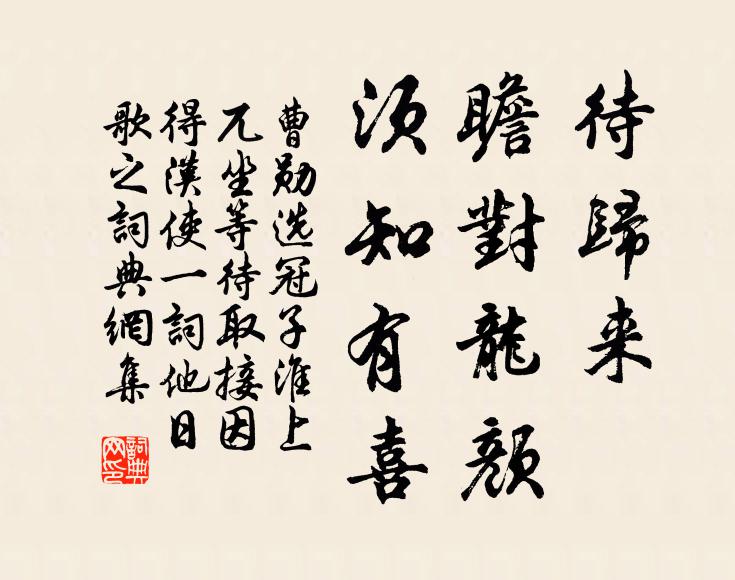 待歸来
瞻對龍顏
须知有喜
曹勋选冠子淮上
兀坐等待取接因
得漢使一詞他日
歌之詞典網集
詞典網印